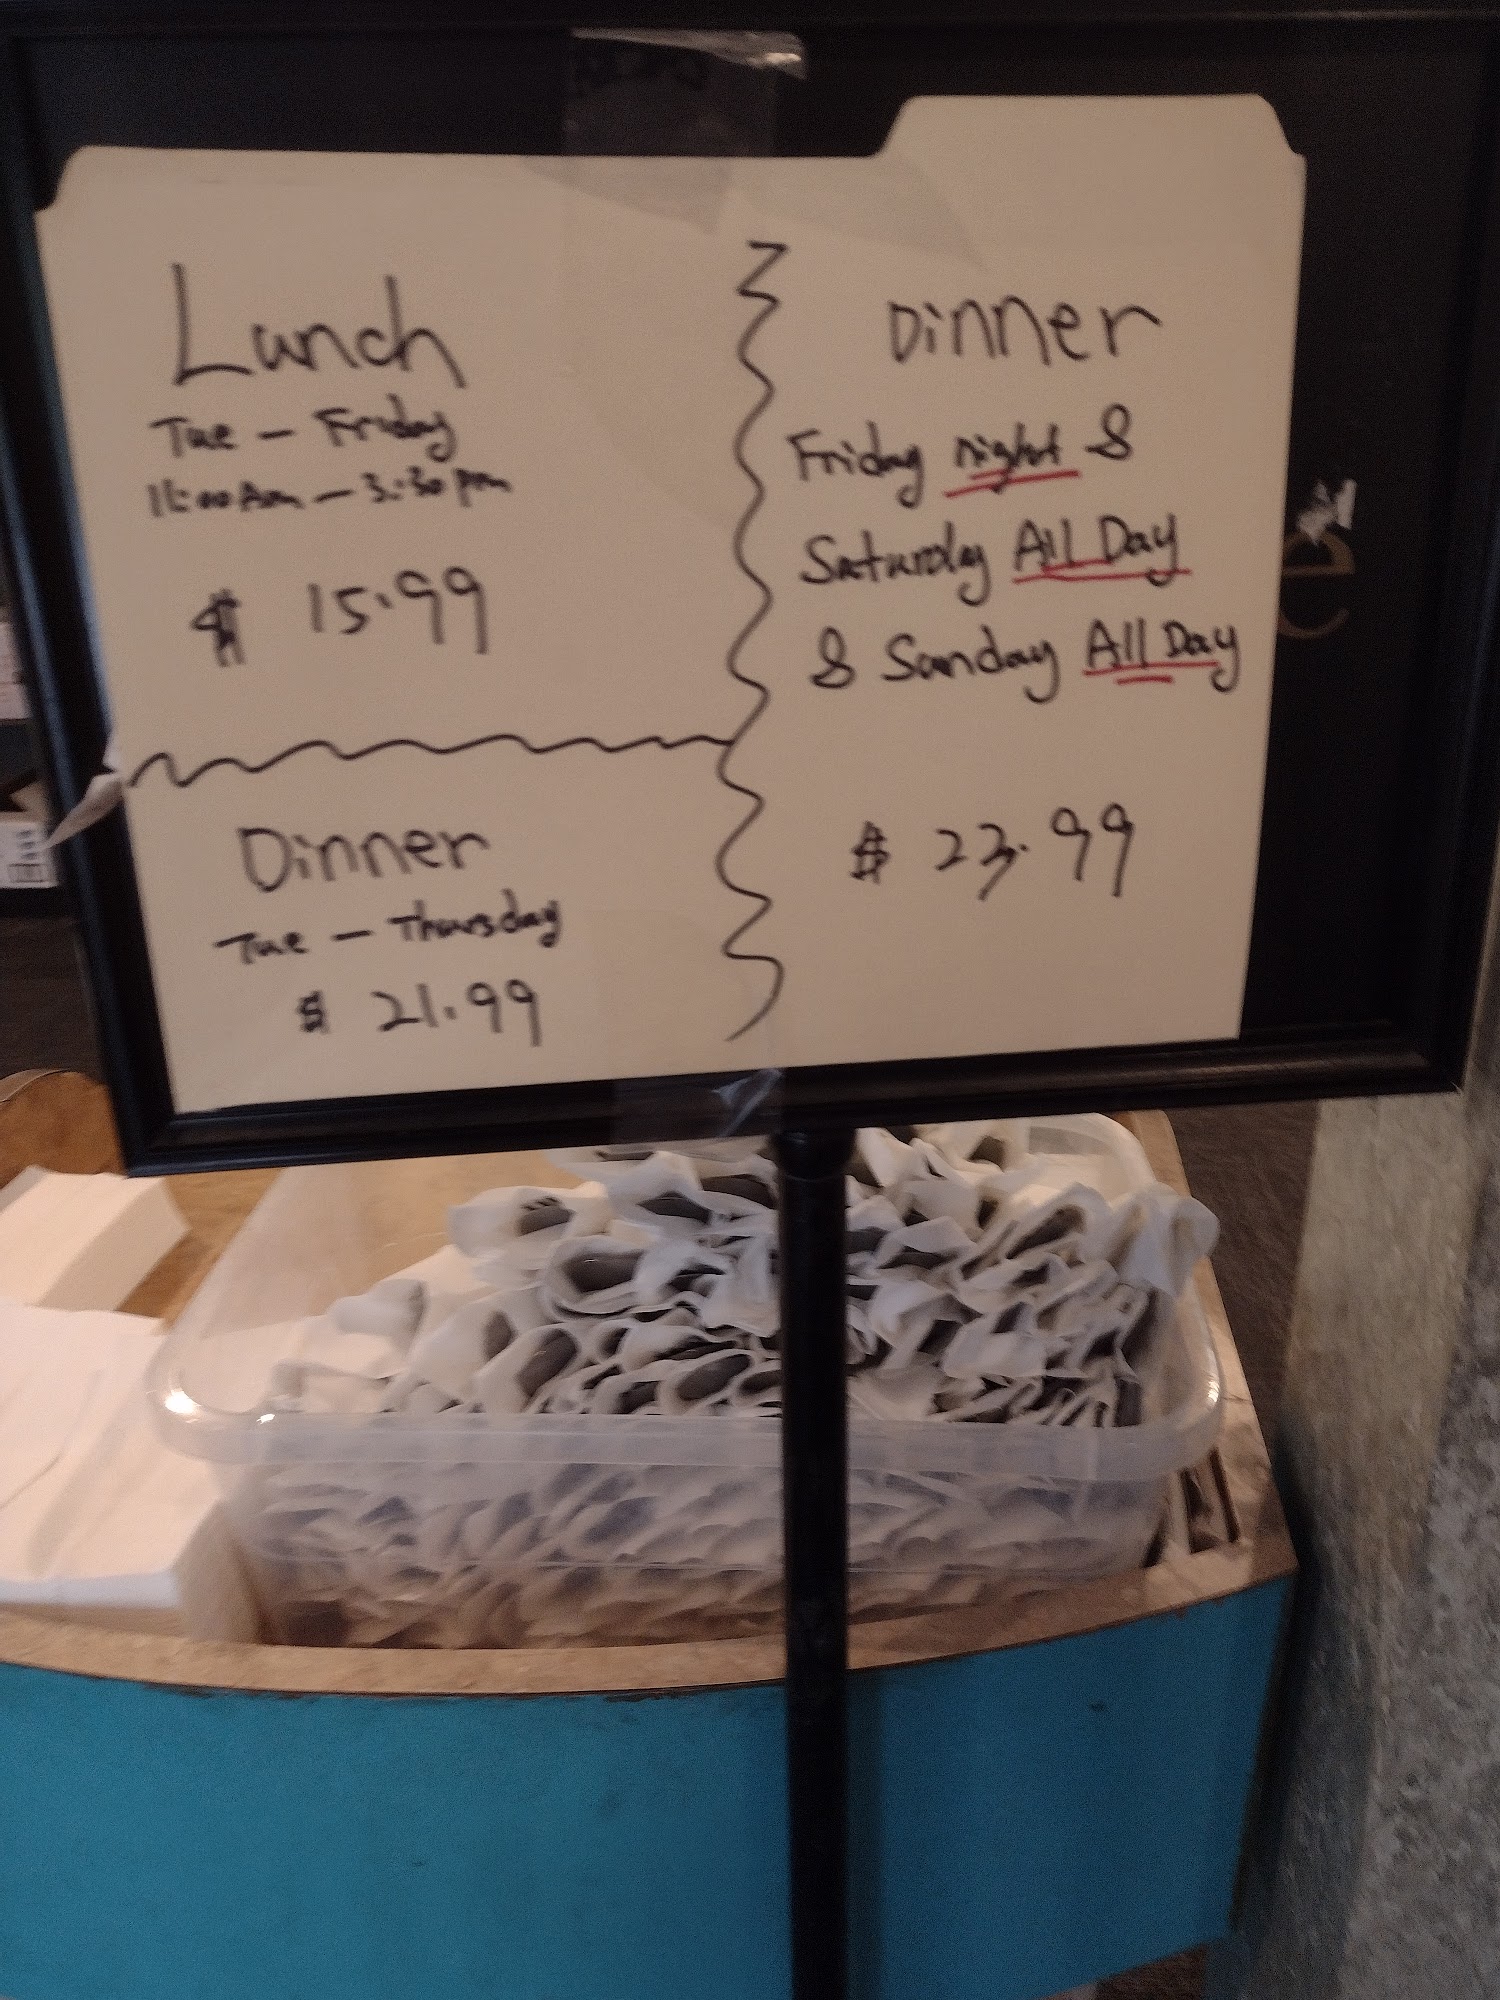 Lunch
Tue - Friday
11:00 Am - 3:30 pm
$ 15.99
Dinner
Tue - Thursday
$ 21.99
Dinner
Friday night &
Saturday All Day
& Sunday All Day
$ 23.99